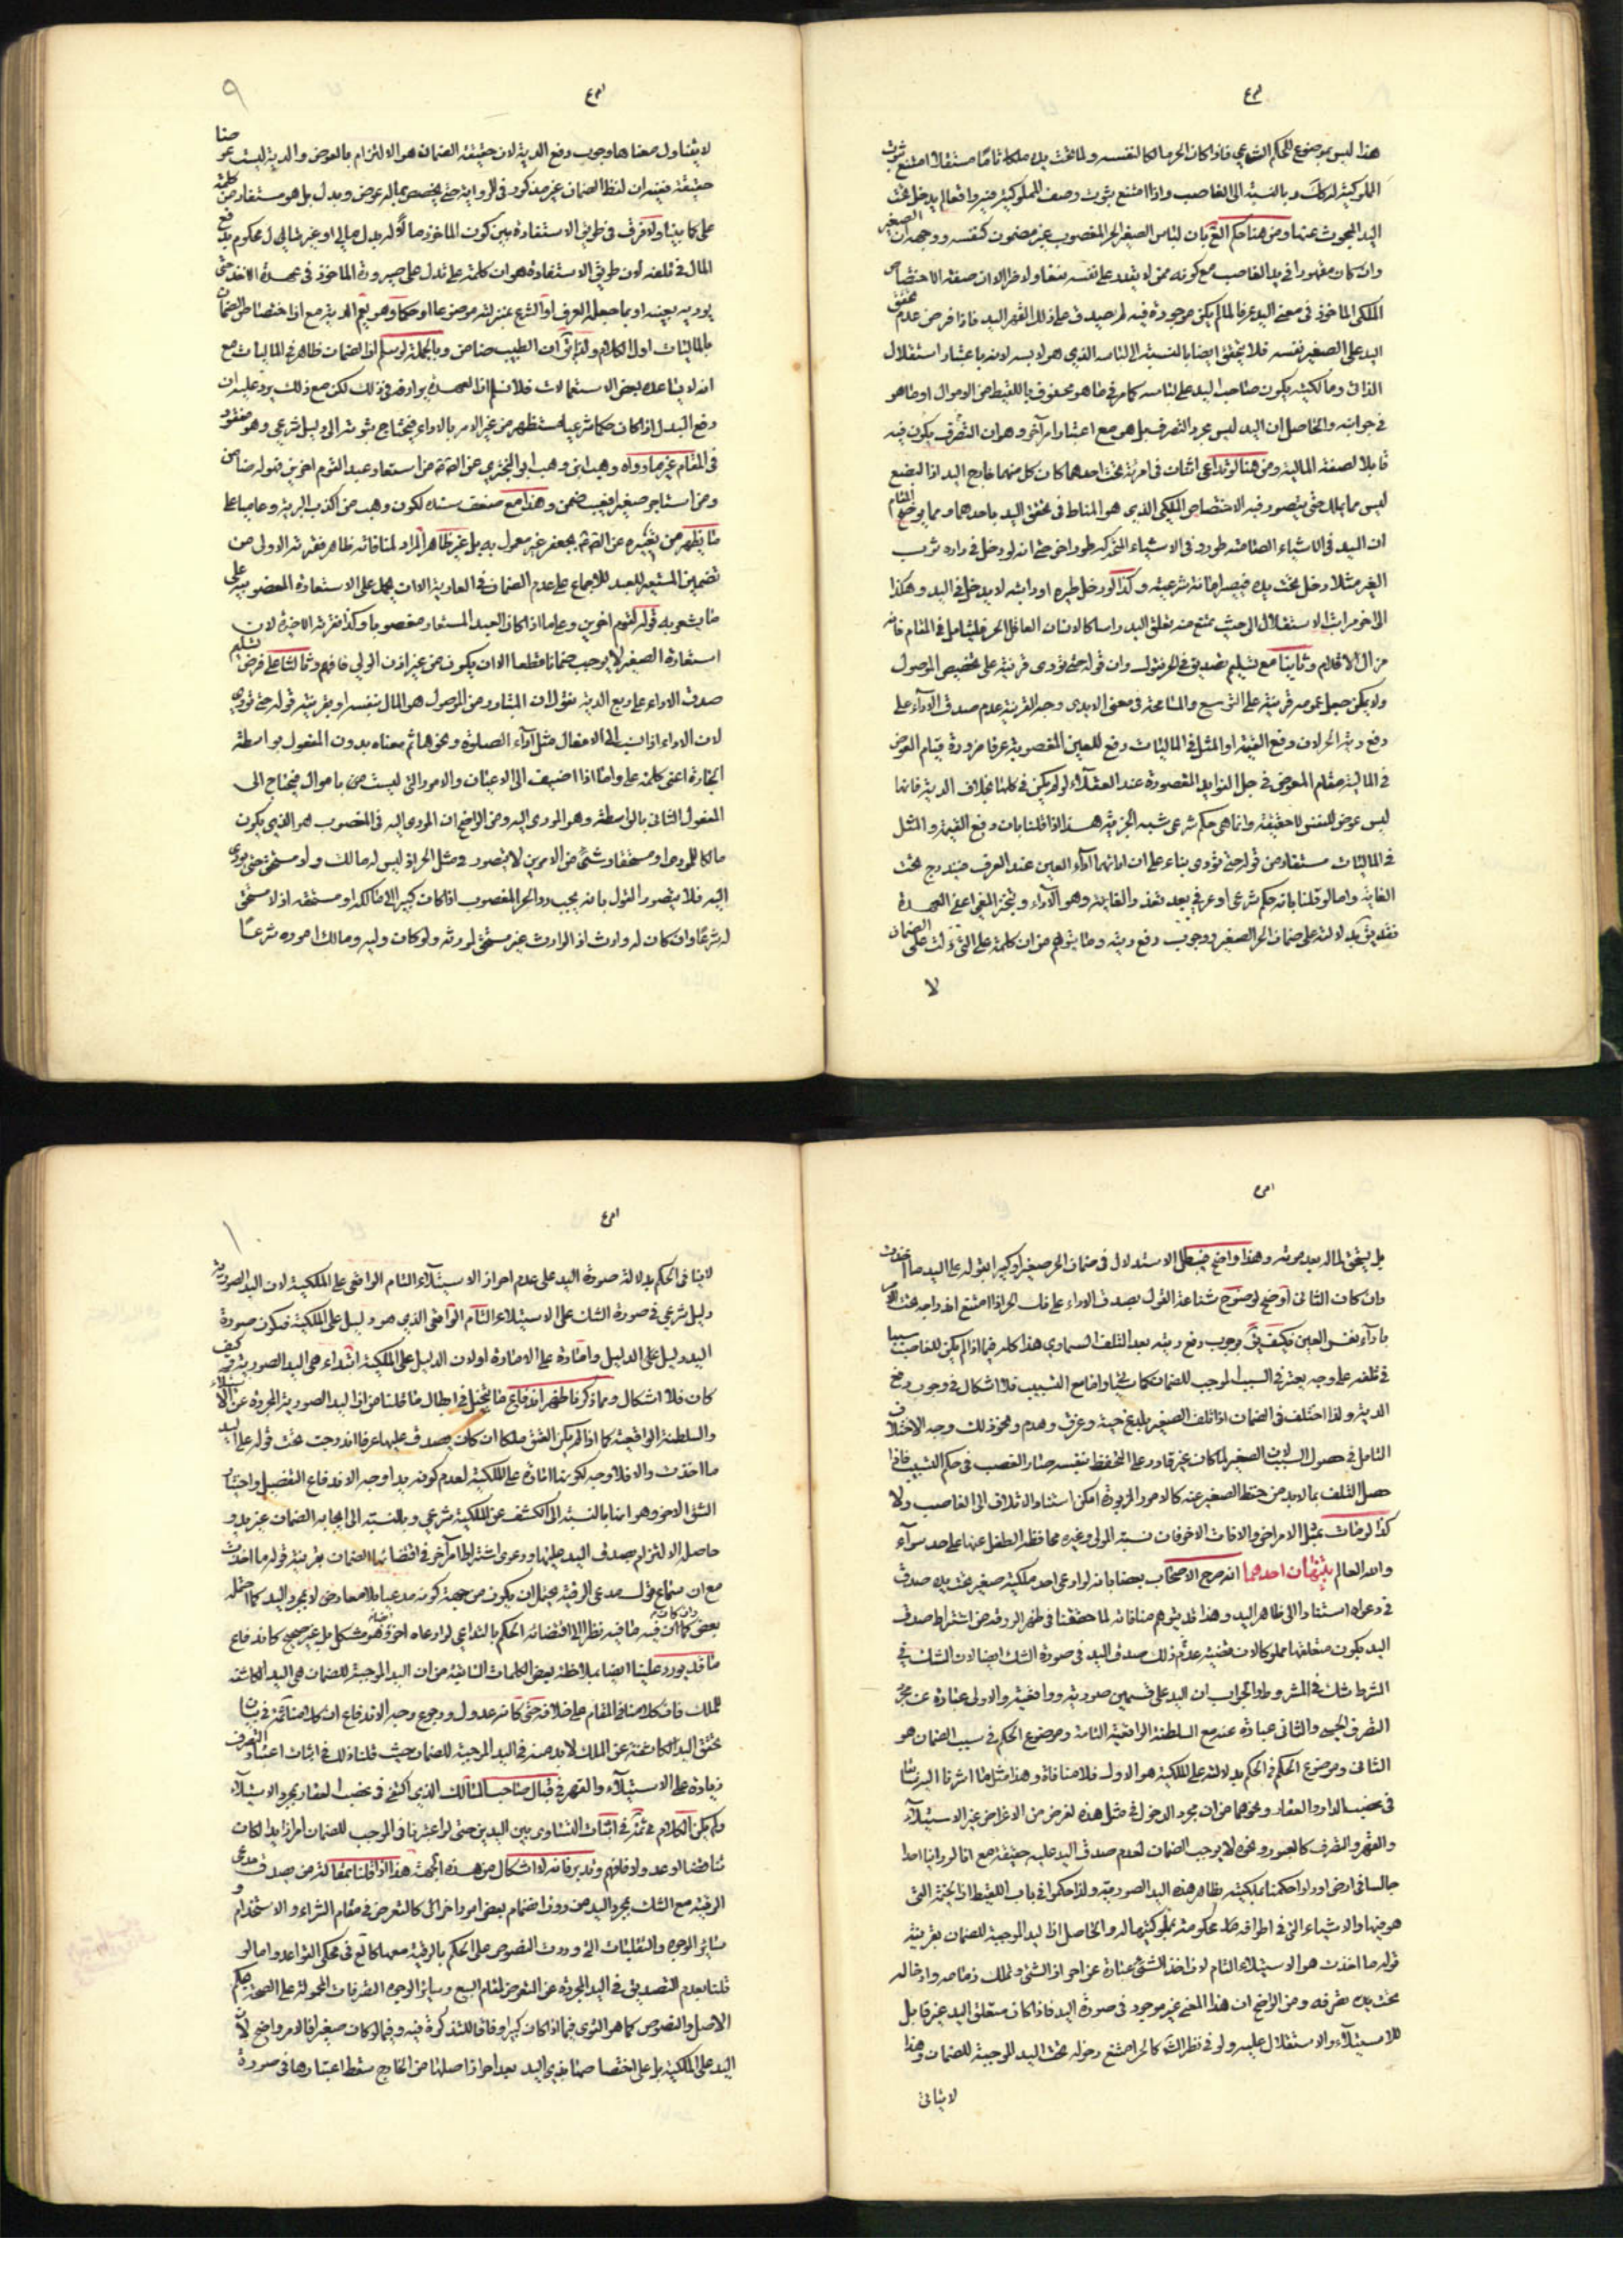 هذا ليس بموضوع للحكم الشرعي فاذا كان الحر مالكا لنفسه ولما تحت يده ملكا تامّا مستقلا امتنع ثبوت
المملوكية له كك وبالنسبة الى الغاصب واذا امتنع ثبوت وصف المملوكية فيه واقعا لم يدخل تحت
اليد المبحوث عنها ومن هنا حكم بان لباس الصغير الحر المغصوب غير مضمون كنفسه ووجهه ان الصغير
وان كان مقهورا في يد الغاصب مع كونه ممن لا يقدر على نفسه نفعا ولا ضرا الا ان صفة الاختصاص
الملكي الماخوذ في معنى اليد عرفا لما لم يكن موجودة فيه لم يصدق على ذلك القهر اليد فاذا فرض عدم تحقق
اليد على الصغير نفسه فلا يتحقق ايضا بالنسبة الى لباسه الذي هو لابسه لانه باعتبار استقلال
الذات ومالكيته يكون صاحب اليد على لباسه كما مر في ما هو محفوف باللقيط من الاموال او ما هو
في جوانبه والحاصل ان اليد ليس مجرد التصرف بل هو مع اعتبار امر آخر وهو ان التصرف يكون فيه
قابلا لصفة المالية ومن هنا لو تداعى اثنان في امرئة تحت احدهما كان كل منهما خارج اليد اذ البضع
ليس مما يملك حتى يتصور فيه الاختصاص الملكي الذي هو المناط في تحقق اليد باحدهما ومما يوضح المقام
ان اليد في الاشياء الصامتة طور وفي الاشياء المتحركة طور اخر حتى انه لو دخل في داره ثوب
الغير مثلا دخل تحت يده فيصير امانة شرعية وكذا لو دخل طيره او دابته لا يدخل في اليد وهكذا
الى اخر مراتب الاستقلال الى حيث يمتنع منه تعلق اليد راسا كالانسان العاقل الحر فليتامل في المقام فانه
مزال الاقدام وثانيا مع تسليم تصديق في الحر نقول وان قوله حتى تؤدى قرينة على تخصيص الموصول
ولا يمكن جعل عمومه قرينة على التوسع والمسامحة في معنى الايدى وجه القرينة عدم صدق الاداء على
دفع دية الحر لان دفع القيمة او المثل في الماليات دفع للعين المغصوبة عرفا ضرورة قيام العوض
في المالية مقام المعوض في جل الفوائد المقصودة عند العقلاء لو لم يكن في كلها بخلاف الدية فانها
ليس عوض للنفس لا حقيقة وانما هي حكم شرعي شبيه الجزية هذا اذا قلنا بان دفع القيمة والمثل
في الماليات مستفاد من قوله حتى تؤدى بناء على ان ادائهما اداء العين عند العرف فيندرج تحت
الغاية واما لو قلنا بانه حكم شرعي او عرفي بعد تعذر الغاية وهو الاداء وتنجز المغيا اعنى العهدة
فقد يق بدلالته على ضمان الحر الصغير ووجوب دفع ديته وما يتوهم من ان كلمة على التي دلت على الضمان
لا
لا يتناول معناها وجوب دفع الدية لان حقيقة الضمان هو الالتزام بالعوض والدية ليست عوضا
حقيقة ففيه ان لفظ الضمان غير مذكور في الرواية حتى يختص بماله عوض وبدل بل هو مستفاد من كلمة
على كما بينا ولا فرق في طريق الاستفادة بين كون الماخوذ مما له بدل مالى او غير مالي محكوم بدفع
المال في تلفه لان طريق الاستفادة هو ان كلمة على تدل على صيرورة الماخوذ في عهدة الاخذ حتى
يوديه بعينه او بما جعله العرف او الشرع بمنزلته موضوعا او حكما وهو يعم الدية مع ان اختصاص الضمان
بالماليات اول الكلام ولذا يق ان الطبيب ضامن وبالجملة لو سلم ان الضمان ظاهر في الماليات مع
انه لا يساعده بعض الاستعمالات فلا نسلم ان العهدة يرادفه في ذلك لكن مع ذلك يرد عليه ان
دفع البدل اذا كان حكما شرعيا مستظهر من غير الامر بالاداء فيحتاج ثبوته الى دليل شرعي وهو مفقود
في المقام غير ما رواه وهب ابن وهب ابو البخترى عن الصادق من استعار عبدا لقوم اخرين فهو له ضامن
ومن استاجر صغيرا فعيب ضمن وهذا مع ضعف سنده لكون وهب من اكذب البرية وعاميا على
ما يظهر من تعبيره عن الصادق بجعفر غير معمول به بل غير ظاهر المراد لمنافاته ظاهر فقرته الاولى من
تضمين المستعير للعبد للاجماع على عدم الضمان في العارية الا ان يحمل على الاستعارة المغصوبية على
ما يشعر به قوله لقوم اخرين وعلى ما اذا كان العبد المستعار مغصوبا وكذا فقرته الاخيرة لان
استعارة الصغير لا يوجب ضمانا قطعا الا ان يكون من غير اذن الولي فافهم وثالثا على فرض تسليم
صدق الاداء على دفع الدية نقول ان المتبادر من الموصول هو المال بنفسه او بقرينة قوله حتى تؤدى
لان الاداء اذا نسب الى الافعال مثل اداء الصلوة ونحوها تم معناه بدون المفعول بواسطة
الجارة اعنى كلمة على واما اذا اضيف الى الاعيان والامور التي ليست من باب الاموال فيحتاج الى
المفعول الثاني بالواسطة وهو المودى اليه ومن الواضح ان المودى اليه في المغصوب هو الذي يكون
مالكا للمودى او مستحقا وشئ من الامرين لا يتصور في مثل الحر اذ ليس له مالك ولا مستحق حتى يودى
اليه فلا يتصور القول بانه يجب رد الحر المغصوب اذا كان كبيرا الى مالكه او مستحقه اذ لا مستحق
له شرعا وان كان له وارث اذ الوارث غير مستحق لمورثه ولو كان وليه ومالك اموره شرعا
بل يستحق لماله بعد موته وهذا واضح فيبطل الاستدلال في ضمان الحر صغيرا وكبيرا بقوله على اليد ما اخذت
وان كان الثاني اوضح لوضوح شناعة القول بصدق الاداء على فك الحر اذا امتنع اندراجه تحت الامر
باداء نفس العين فكيف يق بوجوب دفع ديته بعد التلف السماوي هذا كله فيما اذا لم يكن للغاصب سببا
في تلفه على وجه يعتبر في السبب الموجب للضمان كما سيجئ واما مع التسبيب فلا اشكال في وجوب دفع
الدية ولذا اختلف في الضمان اذا تلف الصغير بلدغ حية وغرق وهدم ونحو ذلك وجه الاختلاف
التامل في حصول السبب لان الصغير لما كان غير قادر على التحفظ بنفسه صار الغصب في حكم التسبيب فاذا
حصل التلف بما لابد من حفظ الصغير عنه كالامور المزبورة امكن استناد الاتلاف الى الغاصب ولا
كذا لو مات بمثل الامراض والافات الاخر فان نسبة الولى وغيره محافظ الطفل عنها على حد سواء
والله العالم تنبيهان احدهما انه صرح الاصحاب بعضا بانه لو ادعى احد ملكية صغير تحت يده صدق
في دعواه استنادا الى ظاهر اليد وهذا قد يتوهم منافاته لما حققنا في ظهر الورقة من اشتراط صدق
اليد بكون متعلقها مملوكا لان قضية عدم ذلك صدق اليد في صورة الشك ايضا لان الشك في
الشرط شك في المشروط والجواب ان اليد على قسمين صورية وواقعية والاولى عبارة عن مجرد
التصرف الحسي والثاني عبارة عنه مع السلطنة الواقعية التامة وموضوع الحكم في سبب الضمان هو
الثاني وموضوع الحكم في الحكم بدلالته على الملكية هو الاول فلا منافاة وهذا مثل ما اشرنا اليه سابقا
في غصب الدار والعقار ونحوهما من ان مجرد الدخول في مثل هذه لغرض من الاغراض غير الاستيلاء
والقهر والتصرف كالعبور ونحوه لا يوجب الضمان لعدم صدق اليد عليه حقيقة مع انا لو راينا احدا
جالسا في ارض او دار احكمنا بملكيته بظاهر هذه اليد الصورية ولذا حكموا في باب اللقيط ان الخيمة التي
هو فيها والاشياء التي في اطرافه كل محكومة بمملوكيتها له والحاصل ان اليد الموجبة للضمان بقرينة
قوله ما اخذت هو الاستيلاء التام لان اخذ الشئ عبارة عن احراز الشئ وتملك زمامه وادخاله
تحت يده تصرفه ومن الواضح ان هذا المعنى غير موجود في صورة اليد فاذا كان متعلق اليد غير قابل
للاستيلاء والاستقلال عليه ولو في نظر الشرع كالحر امتنع دخوله تحت اليد الموجبة للضمان وهذا
لا ينافي
لا ينافي الحكم بدلالة صورة اليد على عدم احراز الاستيلاء التام الواقعي على الملكية لان اليد الصورية
دليل شرعي في صورة الشك على الاستيلاء التام الواقعي الذي هو دليل على الملكية فيكون صورة
اليد دليل على الدليل وامارة على الامارة اولان الدليل على الملكية ابتداء هي اليد الصورية فكيف
كان فلا اشكال ومما ذكرنا ظهر اندفاع ما يتخيل في ابطال ما قلنا من ان اليد الصورية المجردة عن الاستيلاء
والسلطنة الواقعية كما اذا لم يكن الشئ ملكا ان كان يصدق عليها عرفا اندرجت تحت قوله على اليد
ما اخذت والا فلا وجه لكونها امارة على الملكية لعدم كونه يدا وجه الاندفاع التفصيل واختيار
الشق الاخر وهو انها بالنسبة الى الكشف عن الملكية شرعي وبالنسبة الى ايجابه الضمان غير يد و
حاصله الالتزام بصدق اليد عليها ودعوى اشتراط امر آخر في اقتضائها الضمان بقرينة قوله ما اخذت
مع ان سماع قول مدعى الرقية يحتمل ان يكون من جهة كونه مدعيا بلا معارض لا بمجرد اليد كما احتمله
بعض كما ان فيه ما فيه نظرا الى اقتضائه الحكم بالتداعي لو ادعاه اخر وهو مشكل بل غير صحيح كاندفاع
ما قد يورد علينا ايضا بملاحظة بعض الكلمات السابقة من ان اليد الموجبة للضمان هي اليد الكاشفة
للملك فان كلامنا في المقام على خلافه حتى كانه عدول ورجوع وجه الاندفاع ان كلامنا ثمة في بيان
تحقق اليد الكاشفة عن الملك لابد منه في اليد الموجبة للضمان حيث قلنا ذلك في اثبات اعتبار التصرف
زيادة على الاستيلاء والقهر في قبال صاحب المسالك الذي اكتفى في غصب العقار بمجرد الاستيلاء
ولم يكن الكلام في ثمة في اثبات التساوى بين اليدين حتى لو اعتبرنا في الموجب للضمان امرا زائدا لكان
مناقضا لوعد ولا فافهم وتدبر فانه لا اشكال من هذه الجهة هذا اذا قلنا بمقالة من صدق مدعى
الرقية مع الشك بمجرد اليد من دون انضمام بعض امور اخر الى كالتعرض في مقام الشراء والاستخدام و
سائر الوجوه والتقلبات التي وردت النصوص على الحكم بالرقية معها كما في محكي القواعد واما لو
قلنا بعدم التصديق في اليد المجردة عن التعرض لمقام البيع وسائر الوجوه التصرفات المحمولة على الصحة بحكم
الاصل والنصوص كما هو القوى فيما اذا كان كبيرا وفاقا للتذكرة فيه وفيما لو كان صغيرا فالامر واضح لان
اليد على الملكية بل على اختصاص ما بذى اليد بعد احراز اصلها من الخارج سقط اعتبارها في صورة